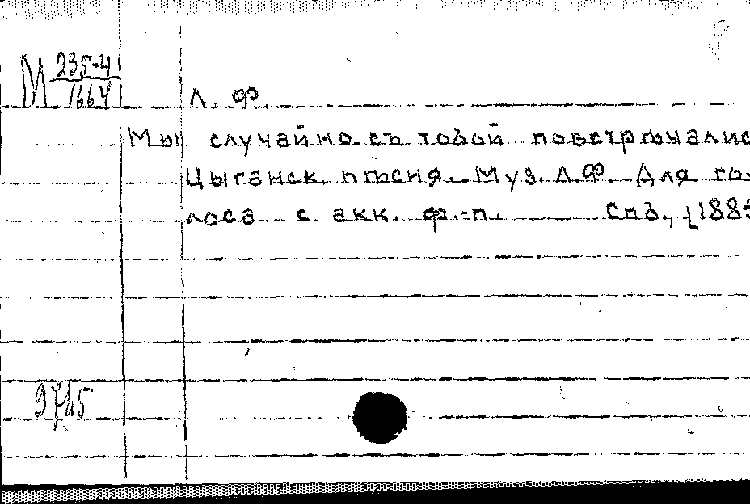 М 235-4
1664
Л. Ф.
Мы случайно съ тобой повстрѣчалис
Цыганск. пѣсня. Муз. Л.Ф. Для го-
лоса с акк. ф.-п. Спб.,